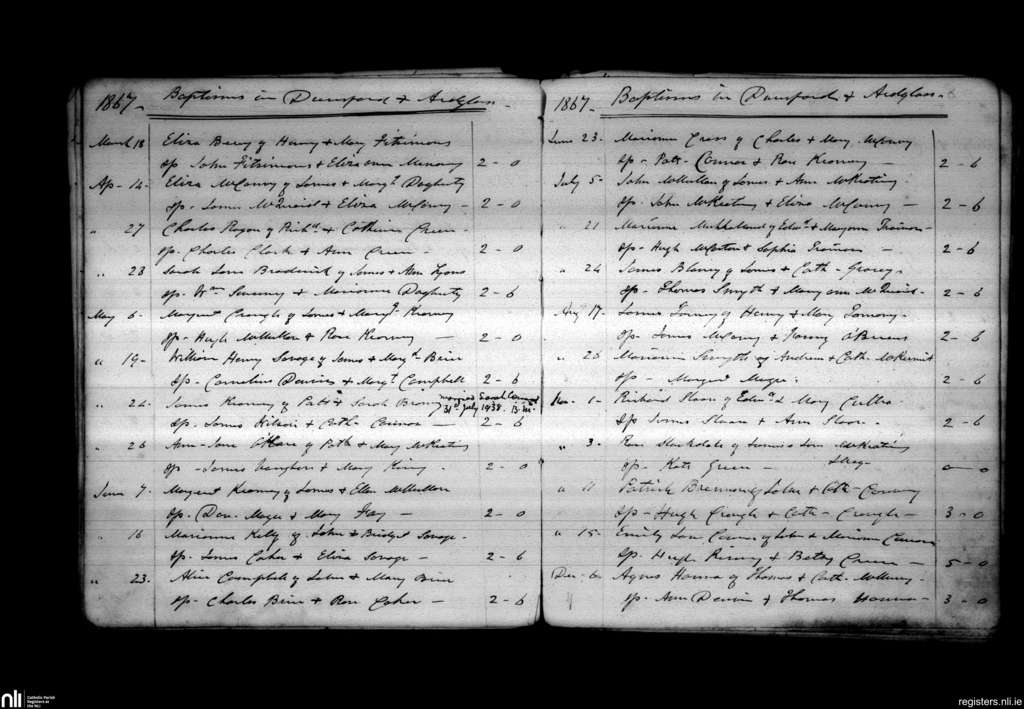 1867 - Baptisms in Dunsford & Ardglass -
March 18 Eliza Berry of Henry & Mary Fitsimons
sp. John Fitsimons & Eliza ann 2 - 0
Ap - 14 - Eliza McConvy of James & Margt Dogherty
sp. James McQuaid & Eliza McConvy - 2 - 0
" 27 Charles Rogan of Richd & Catherine Green -
sp. Charles Clark & Ann Green - 2 - 0
" 28 Sarah Jane Broderick of James & Ann Lyons
sp. Wm & Marianne Dogherty 2 - 6
May 6 - Margaret Creagh of James & Margt
sp. Hugh McMullan & Rose 2 - 0
" 19 - William Henry Savage of James & Margt Birie
sp - Cornelius Davies & Margt Campbell 2 - 6
" 26 - James of Patk & Sarah married Sarah
31st July 1938. B.M.
sp. James & Cath - Connor - 2 - 6
" 26 Ann-Jane O'Hare of Patk & Mary McKeating
sp - James Vaughan & Mary King - 2 - 0
June 7 - Margaret of James & Ellen McMullan
sp - Dan - Magee & Mary Fay - 2 - 0
" 16 Marianne Kelly of John & Bridget Savage -
sp. James Caher & Eliza Savage - 2 - 6
" 23 - Alice Campbell of John & Mary Birie
sp - Charles Birie & Rose Caher - 2 - 6
1867 - Baptisms in Dunsford & Ardglass -
June 23 - Marianne Cross of Charles & Mary McConvy
sp - Patk - Connor & Rose - 2 - 6
July 5 - John McMullan of James & Ann McKeating
sp. John McKeating & Eliza McConvy - 2 - 6
" 21 Marianne Mulholland of Edwd & Maryann
sp - Hugh & Sophia - 2 - 6
" 24 James Blaney of James & Cath -
sp - Thomas Smyth & Mary ann McQuaid - 2 - 6
Aug 17 - of Henry & Mary
sp - James McConvy & O'Beirne 2 - 6
" 26 Marianne Smyth of Andrew & Cath - McKermit
sp - Margaret Magee - 2 - 6
Nov - 1 - Richard Sloan of Edwd & Mary Cultra
sp James Sloan & Ann Sloan - 2 - 6
" 3 - Rose Stockdale of James & Jane McKeating
sp - Kate Green - 0 - 0
" 11 Patrick Brennan of John & Cath -
sp - Hugh Creagh & Cath - Creagh - 3 - 0
" 15 - Emily Jane of John & Miriam
sp. Hugh & Betsy Green - 5 - 0
Dec - 6 Agnes Hanna of Thomas & Cath -
sp - Ann & Thomas Hanna - 3 - 0
nli Catholic Parish
Registers at
the NLI
registers.nli.ie